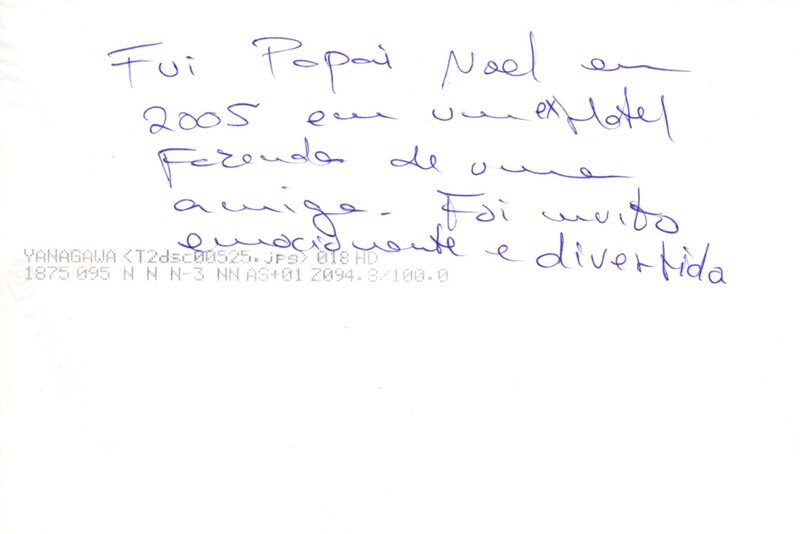 Fui Papai Noel em
2005 em um ex Hotel
Fazenda de uma
amiga. Foi muito
emocionante e divertida
YANAGAWA <T2dsc00525.jpg> 018 HD
1875 095 N N N-3 NN AS+01 2094.8/100.0